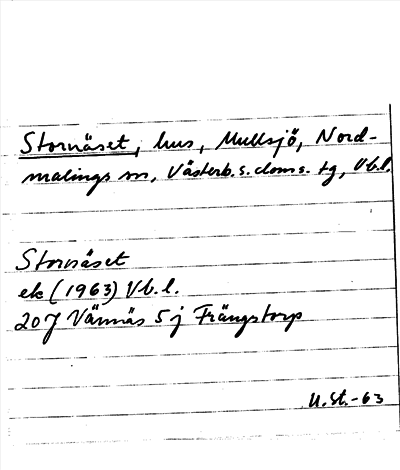 Stornäset, hus, Mullsjö, Nord-
malings sn, Västerb. s. doms. tg, Vb.l.
Stornäset
ek (1963) Vb.l.
20J Vännäs 5 j Frängstorp
U.St.-63